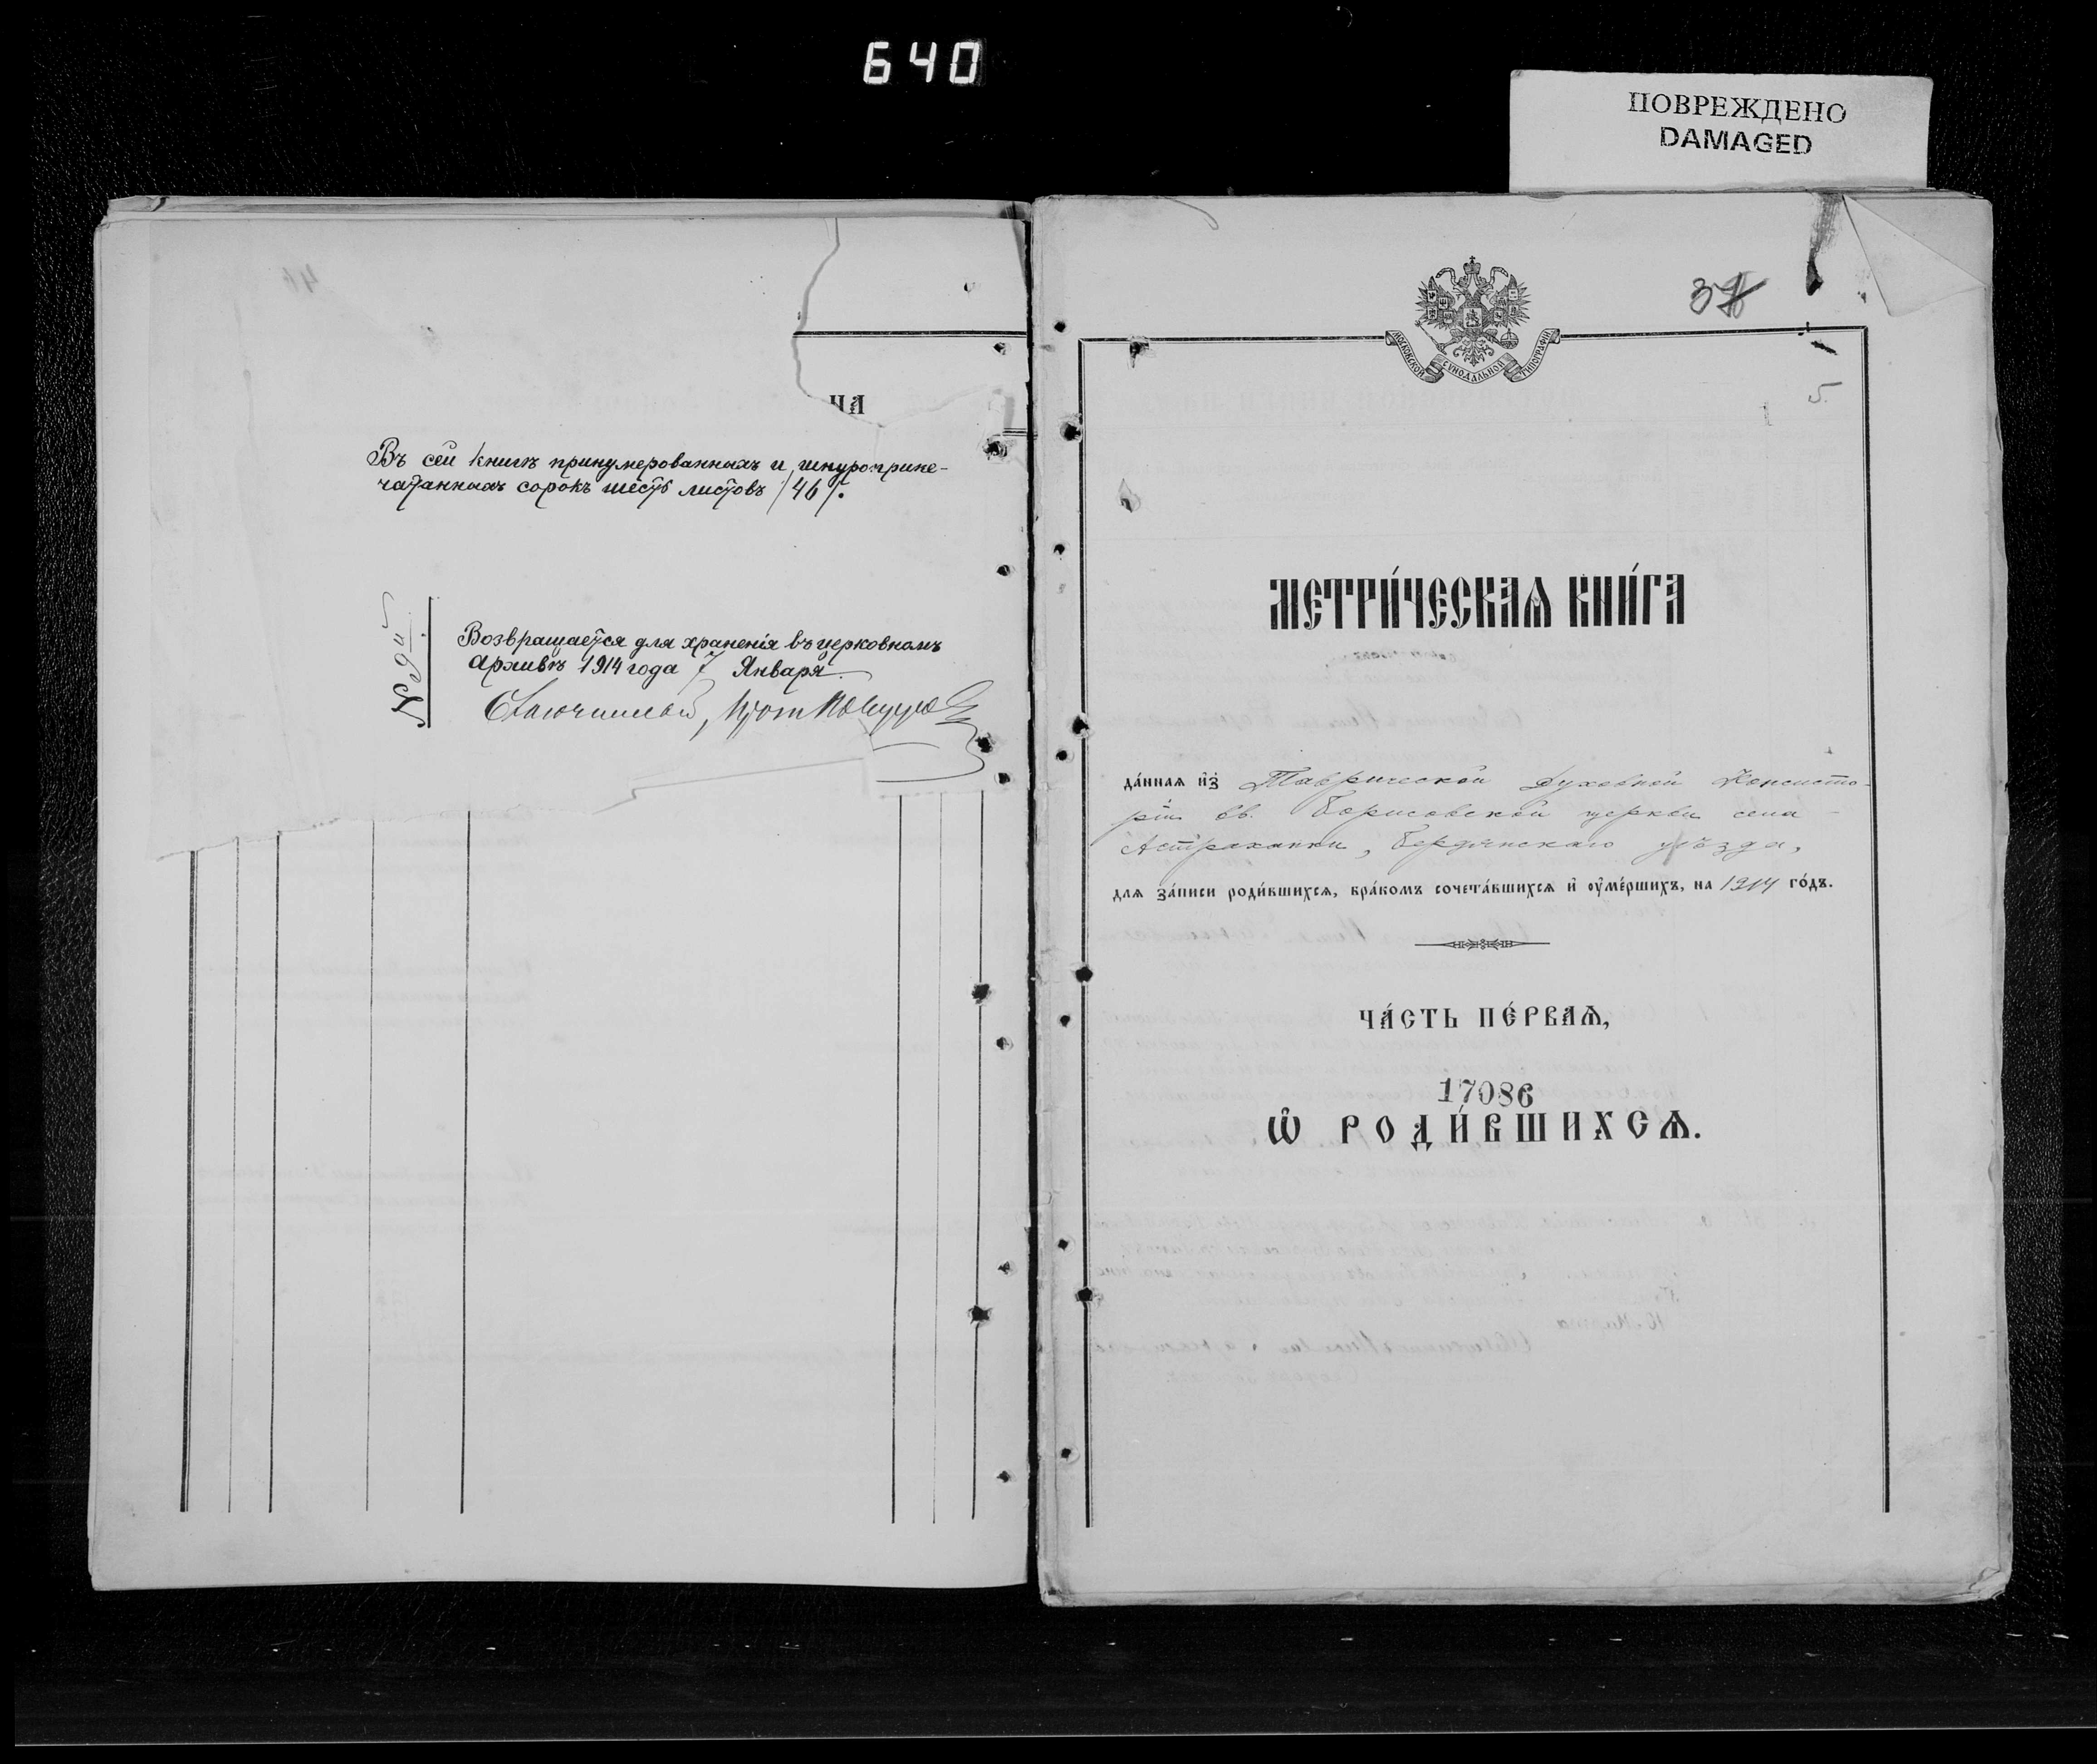 640
ПОВРЕЖДЕНО
DAMAGED
46
ЧА
Въ сей книгѣ принумерованныхъ и шнуроприпе-
чатанныхъ сорокъ шесть листовъ /46/.
Возвращается для храненія въ церковномъ
архивѣ 1914 года 7 Января.
МОСКОВСКОЙ СѴНОДАЛЬНОЙ ТИПОГРАФІИ
37
5.
МЕТРИ́ЧЕСКАѦ КНИ́ГА
да́ннаѧ и҆з̾ Таврической Духовной Консисто-
ріи въ Борисовской церкви села
Астраханки, Бердянскаго уѣзда,
длѧ за́писи роди́вшихсѧ, бра́комъ сочета́вшихсѧ и҆ ѹ҆ме́ршихъ, на 1914 го́дъ.
ЧА́СТЬ ПЕ́РВАѦ,
17086
Ѽ РОДИ́ВШИХСѦ.